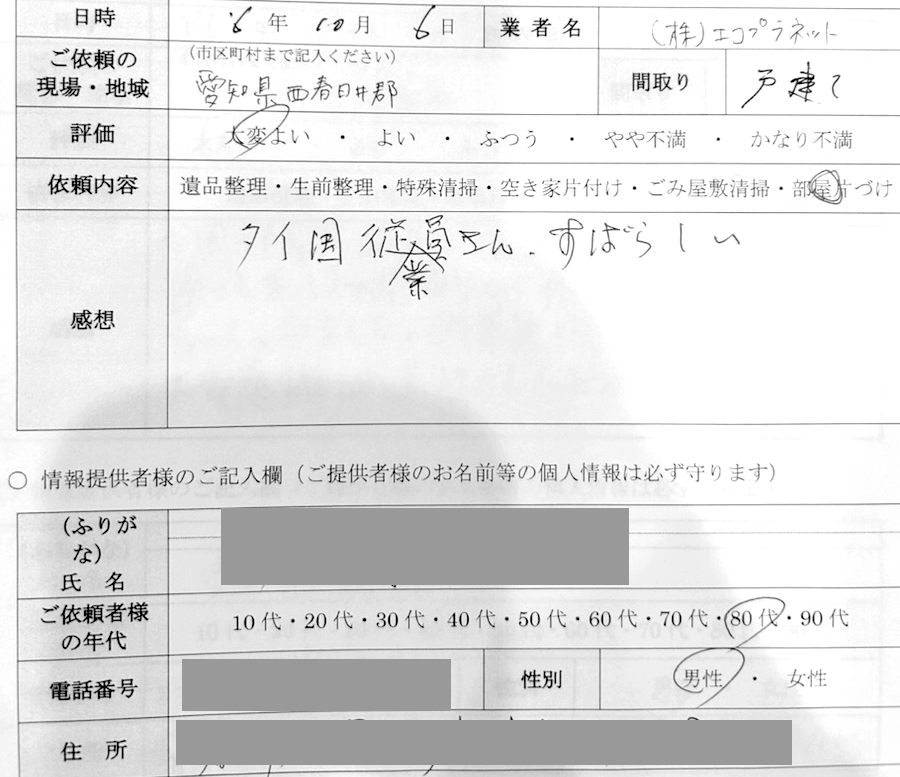 日時 6年 10月 6日 業者名 (株)エコプラネット
ご依頼の現場・地域 (市区町村まで記入ください)
愛知県西春日井郡 間取り 戸建て
評価 大変よい ・ よい ・ ふつう ・ やや不満 ・ かなり不満
依頼内容 遺品整理・生前整理・特殊清掃・空き家片付け・ごみ屋敷清掃・部屋片づけ
感想 タイ国従業員さん、すばらしい
○ 情報提供者様のご記入欄（ご提供者様のお名前等の個人情報は必ず守ります）
（ふりがな）
氏 名
ご依頼者様の年代 10代・20代・30代・40代・50代・60代・70代・80代・90代
電話番号 性別 男性 ・ 女性
住 所